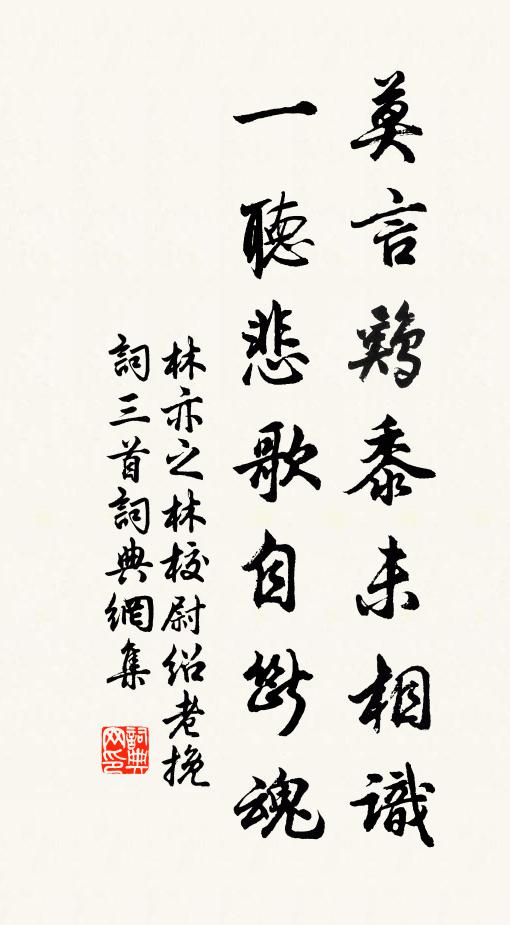 莫言鷄黍未相識
一聽悲歌自斷魂
林亦之林校尉紹老挽
詞三首詞典網集
詞典
网印